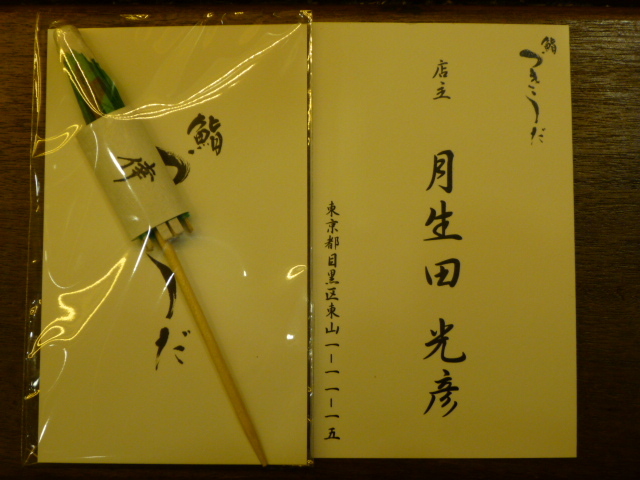 鮨
つきうだ
店主
月生田 光彦
東京都目黒区東山一-一一-一五
鮨
つ
うだ